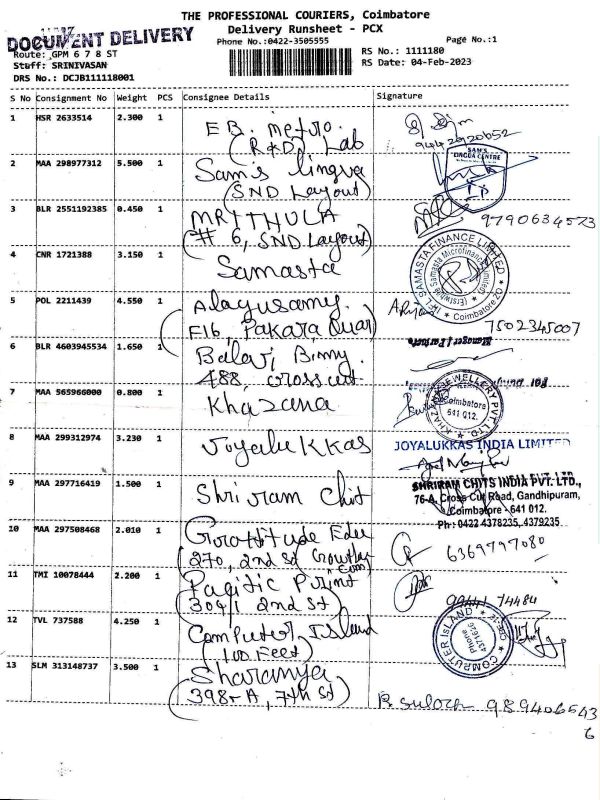 THE PROFESSIONAL COURIERS, Coimbatore
DOCUMENT DELIVERY
Delivery Runsheet - PCX
Phone No.:0422-3505555
Page No.:1
Route: GPM 6 7 8 ST
RS No.: 1111180
Stuff: SRINIVASAN
RS Date: 04-Feb-2023
DRS No.: DCJB111118001
S No Consignment No Weight PCS Consignee Details Signature
1 HSR 2633514 2.300 1 E.B. metro.
(R&D) Lab
2 MAA 298977312 5.500 1 Sam's lingva
(SND Layout)
SAM'S
LINGUA CENTRE
3 BLR 2551192385 0.450 1 MRITHULA 9790634573
(# 6, SND Layout)
4 CNR 1721388 3.150 1 Samasta
SAMASTA FINANCE LIMITED
Coimbatore ZO
5 POL 2211439 4.550 1 Alagusamy 7502345007
F16, Pakara
6 BLR 4603945534 1.650 1 Balaji Binny.
488, cross cut
7 MAA 565966000 0.800 1 Khazana
KHAZANA JEWELLERY PVT LTD.
Coimbatore
641 012.
8 MAA 299312974 3.230 1 Joyalukkas
JOYALUKKAS INDIA LIMITED
9 MAA 297716419 1.500 1 Shriram Chit
SHRIRAM CHITS INDIA PVT. LTD.,
76-A, Cross Cut Road, Gandhipuram,
Coimbatore - 641 012.
Ph : 0422 4378235, 4379235
10 MAA 297508468 2.010 1 Gratitude
(270, 2nd St 6369797080
11 TMI 10078444 2.200 1 Pacific Print
(309/1 2nd St) 74484
12 TVL 737588 4.250 1 Computer Island
(100 Feet)
COMPUTER ISLAND
Phone
4371616
CBE-12
13 SLM 313148737 3.500 1 Sharanya
(398-A, 7th St)